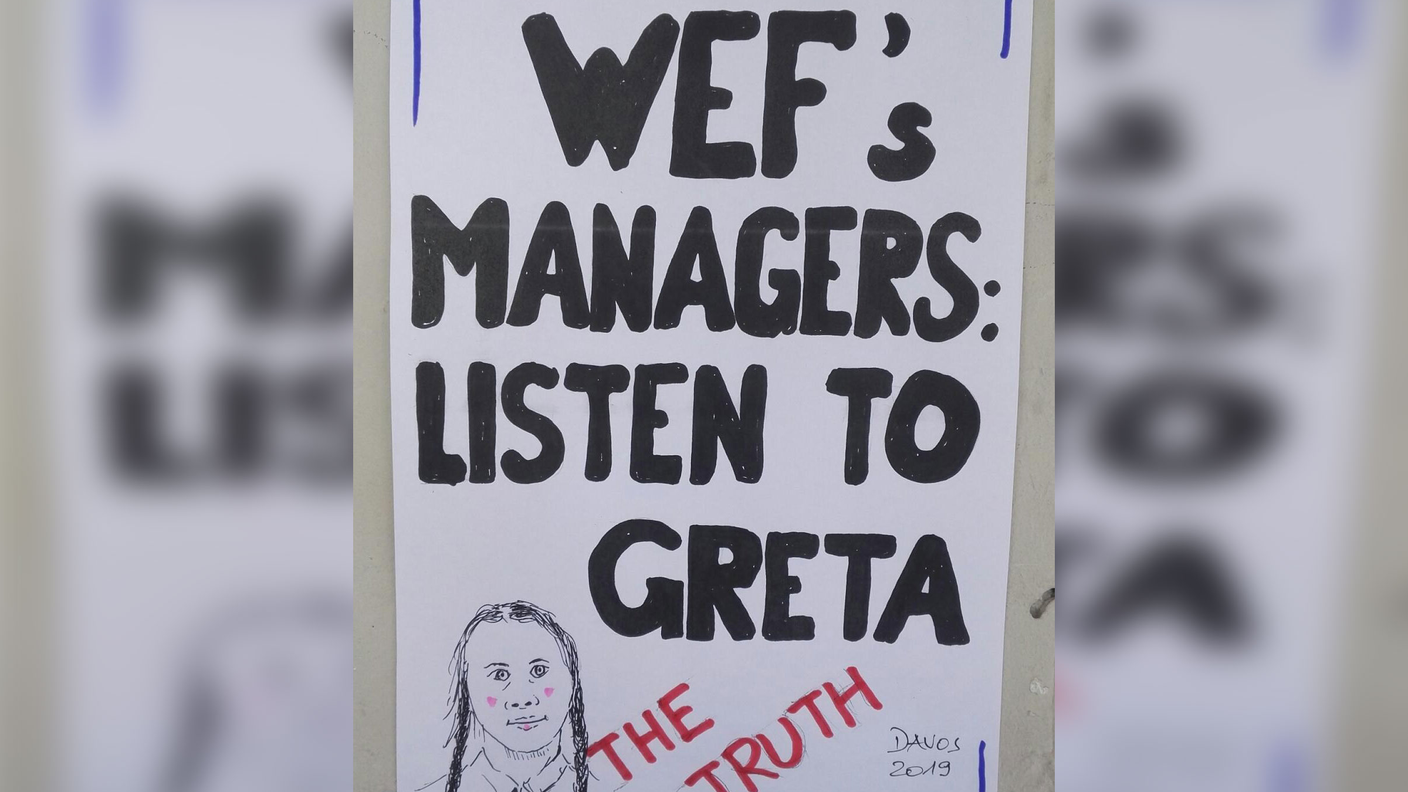 WEF's
MANAGERS:
LISTEN TO
GRETA
THE
TRUTH
DAVOS
2019